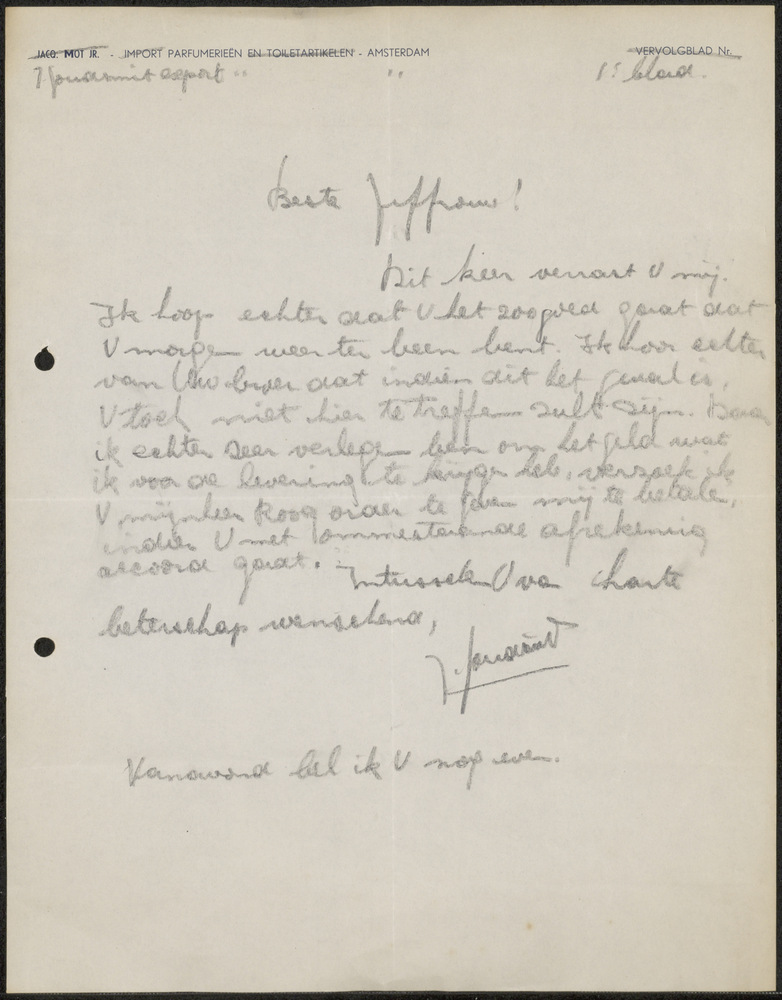 JACQ. MOT JR. - IMPORT PARFUMERIEËN EN TOILETARTIKELEN - AMSTERDAM VERVOLGBLAD Nr.
J Goudsmit export " " 1e blad.
Beste Juffrouw!
Dit keer verrast U mij.
Ik hoop echter dat U het zoo goed gaat dat
U morgen weer ter been bent. Ik hoor echter
van Uw broer dat indien dit het geval is,
U toch niet hier te treffen zult zijn. Daar
ik echter zeer verlegen ben om het geld wat
ik voor de levering te krijgen heb, verzoek ik
U mijnheer Koog order te geven mij te betalen,
indien U met ommestaande afrekening
accoord gaat. Intusschen U van harte
beterschap wenschend,
J. Goudsmit
Vanavond bel ik U nog even.